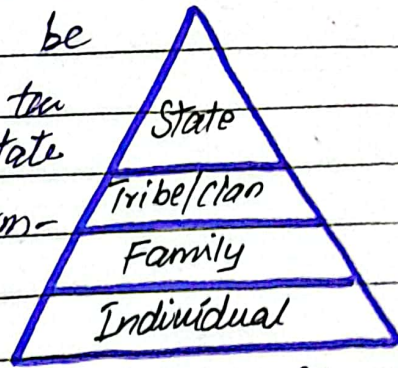 be
State
tate
Tribe/clan
m-
Family
Individual